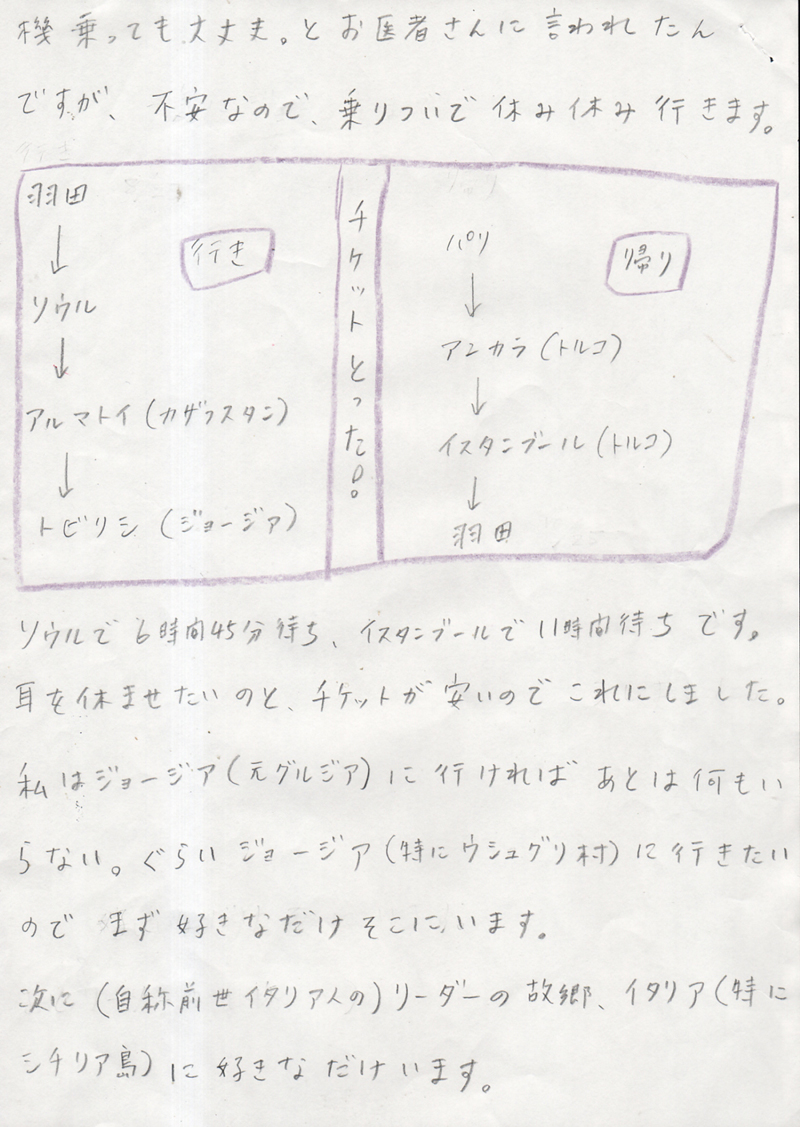 機乗っても大丈夫。とお医者さんに言われしたん
ですが、不安なので、乗りついで休み休み行きます。
羽田
↓
ソウル
↓
アルマトイ(カザフスタン)
↓
トビリシ(ジョージア)
行き
チケットとった!!
パリ
↓
アンカラ(トルコ)
↓
イスタンブール(トルコ)
↓
羽田
帰り
ソウルで6時間45分待ち、イスタンブールで11時間待ちです。
耳を休ませたいのと、チケットが安いのでこれにしました。
私はジョージア(元グルジア)に行ければあとは何もい
らない。ぐらいジョージア(特にウシュグリ村)に行きたい
のでまず好きなだけそこにいます。
次に(自称前世イタリア人の)リーダーの故郷、イタリア(特に
シチリア島)に好きなだけいます。